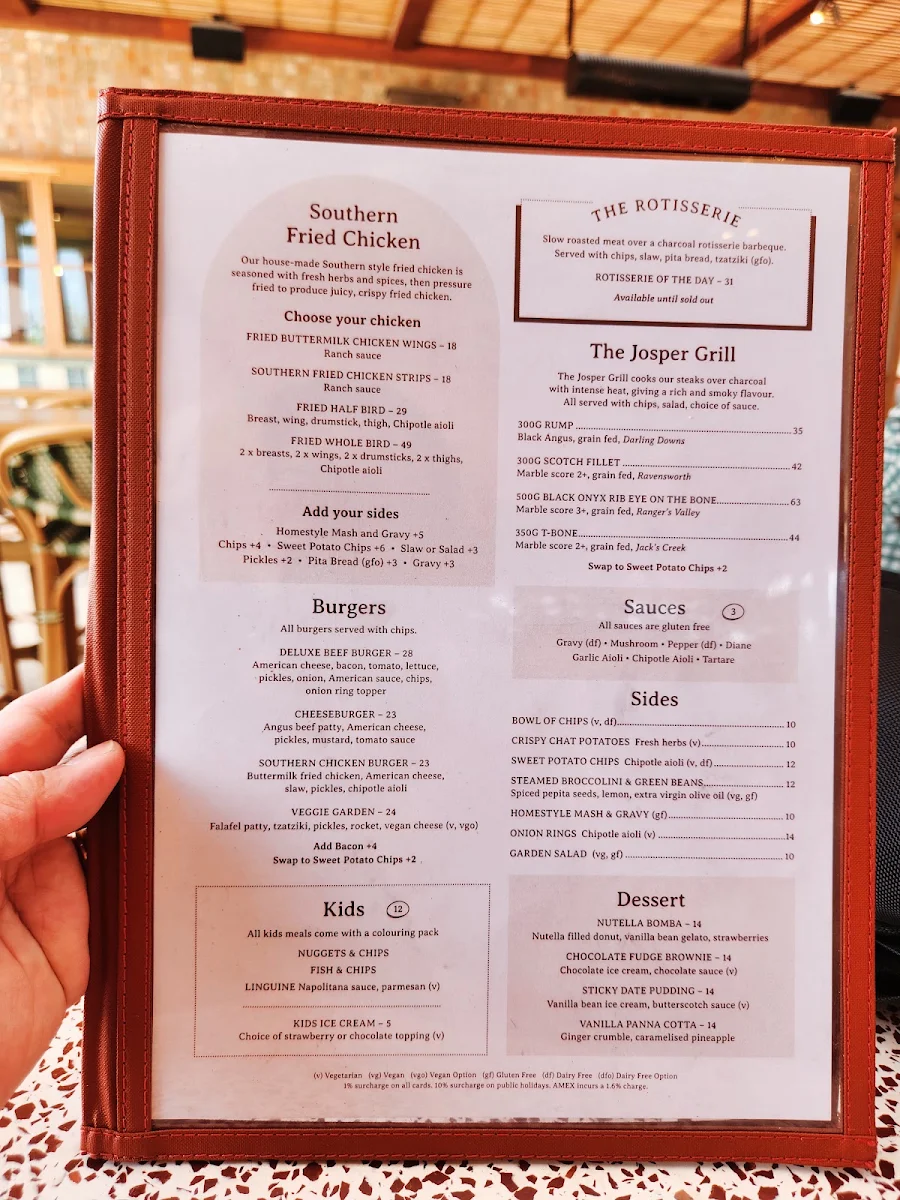 Southern
Fried Chicken
Our house-made Southern style fried chicken is
seasoned with fresh herbs and spices, then pressure
fried to produce juicy, crispy fried chicken.
Choose your chicken
FRIED BUTTERMILK CHICKEN WINGS – 18
Ranch sauce
SOUTHERN FRIED CHICKEN STRIPS – 18
Ranch sauce
FRIED HALF BIRD – 29
Breast, wing, drumstick, thigh, Chipotle aioli
FRIED WHOLE BIRD – 49
2 x breasts, 2 x wings, 2 x drumsticks, 2 x thighs,
Chipotle aioli
Add your sides
Homestyle Mash and Gravy +5
Chips +4 • Sweet Potato Chips +6 • Slaw or Salad +3
Pickles +2 • Pita Bread (gfo) +3 • Gravy +3
Burgers
All burgers served with chips.
DELUXE BEEF BURGER – 28
American cheese, bacon, tomato, lettuce,
pickles, onion, American sauce, chips,
onion ring topper
CHEESEBURGER – 23
Angus beef patty, American cheese,
pickles, mustard, tomato sauce
SOUTHERN CHICKEN BURGER – 23
Buttermilk fried chicken, American cheese,
slaw, pickles, chipotle aioli
VEGGIE GARDEN – 24
Falafel patty, tzatziki, pickles, rocket, vegan cheese (v, vgo)
Add Bacon +4
Swap to Sweet Potato Chips +2
Kids 12
All kids meals come with a colouring pack
NUGGETS & CHIPS
FISH & CHIPS
LINGUINE Napolitana sauce, parmesan (v)
KIDS ICE CREAM – 5
Choice of strawberry or chocolate topping (v)
THE ROTISSERIE
Slow roasted meat over a charcoal rotisserie barbeque.
Served with chips, slaw, pita bread, tzatziki (gfo).
ROTISSERIE OF THE DAY – 31
Available until sold out
The Josper Grill
The Josper Grill cooks our steaks over charcoal
with intense heat, giving a rich and smoky flavour.
All served with chips, salad, choice of sauce.
300G RUMP 35
Black Angus, grain fed, Darling Downs
300G SCOTCH FILLET 42
Marble score 2+, grain fed, Ravensworth
500G BLACK ONYX RIB EYE ON THE BONE 63
Marble score 3+, grain fed, Ranger's Valley
350G T-BONE 44
Marble score 2+, grain fed, Jack's Creek
Swap to Sweet Potato Chips +2
Sauces 3
All sauces are gluten free
Gravy (df) • Mushroom • Pepper (df) • Diane
Garlic Aioli • Chipotle Aioli • Tartare
Sides
BOWL OF CHIPS (v, df) 10
CRISPY CHAT POTATOES Fresh herbs (v) 10
SWEET POTATO CHIPS Chipotle aioli (v, df) 12
STEAMED BROCCOLINI & GREEN BEANS 12
Spiced pepita seeds, lemon, extra virgin olive oil (vg, gf)
HOMESTYLE MASH & GRAVY (gf) 10
ONION RINGS Chipotle aioli (v) 14
GARDEN SALAD (vg, gf) 10
Dessert
NUTELLA BOMBA – 14
Nutella filled donut, vanilla bean gelato, strawberries
CHOCOLATE FUDGE BROWNIE – 14
Chocolate ice cream, chocolate sauce (v)
STICKY DATE PUDDING – 14
Vanilla bean ice cream, butterscotch sauce (v)
VANILLA PANNA COTTA – 14
Ginger crumble, caramelised pineapple
(v) Vegetarian (vg) Vegan (vgo) Vegan Option (gf) Gluten Free (df) Dairy Free (dfo) Dairy Free Option
1% surcharge on all cards. 10% surcharge on public holidays. AMEX incurs a 1.6% charge.